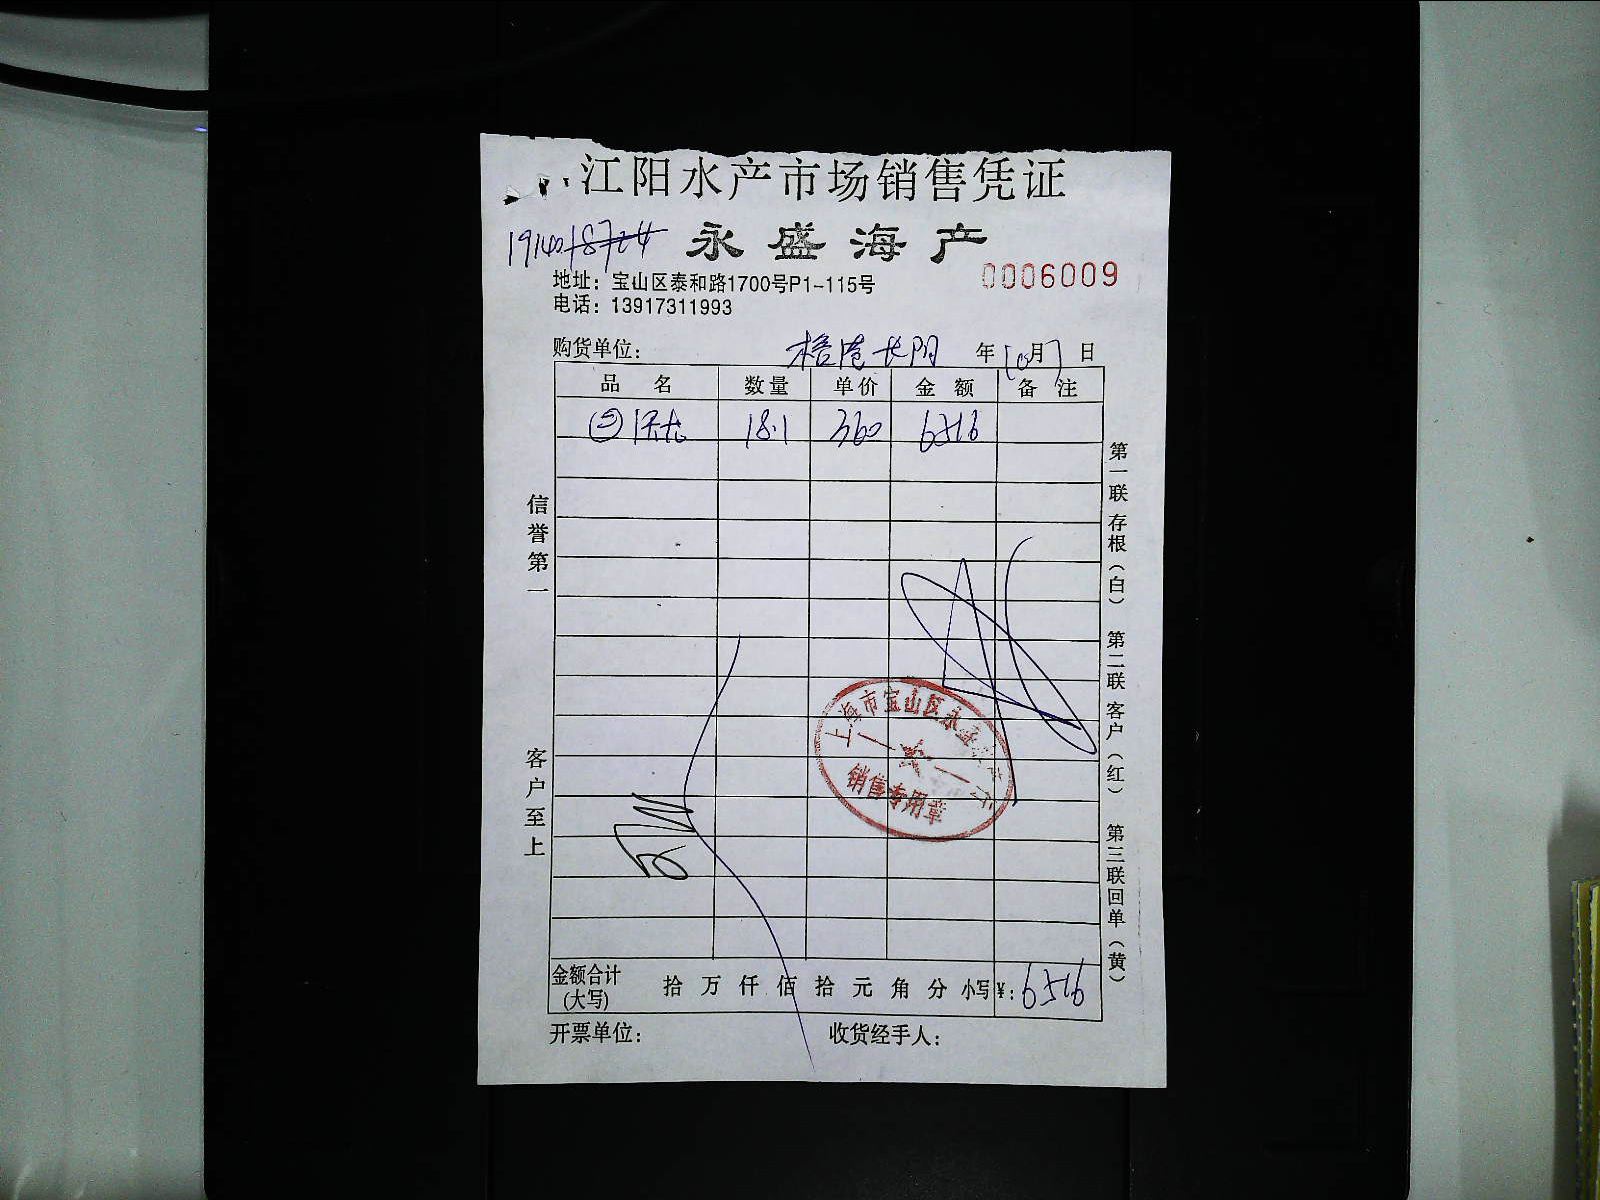 江阳水产市场销售凭证
永盛海产
地址：宝山区泰和路1700号P1-115号
0006009
电话：13917311993
购货单位： 长阳 年 10月7日
品名 数量 单价 金额 备注
18.1 360 6516
信誉第一
客户至上
第一联 存根（白） 第二联 客户（红） 第三联 回单（黄）
上海市宝山区永
销售专用章
金额合计（大写） 拾 万 仟 佰 拾 元 角 分 小写¥：6516
开票单位： 收货经手人：